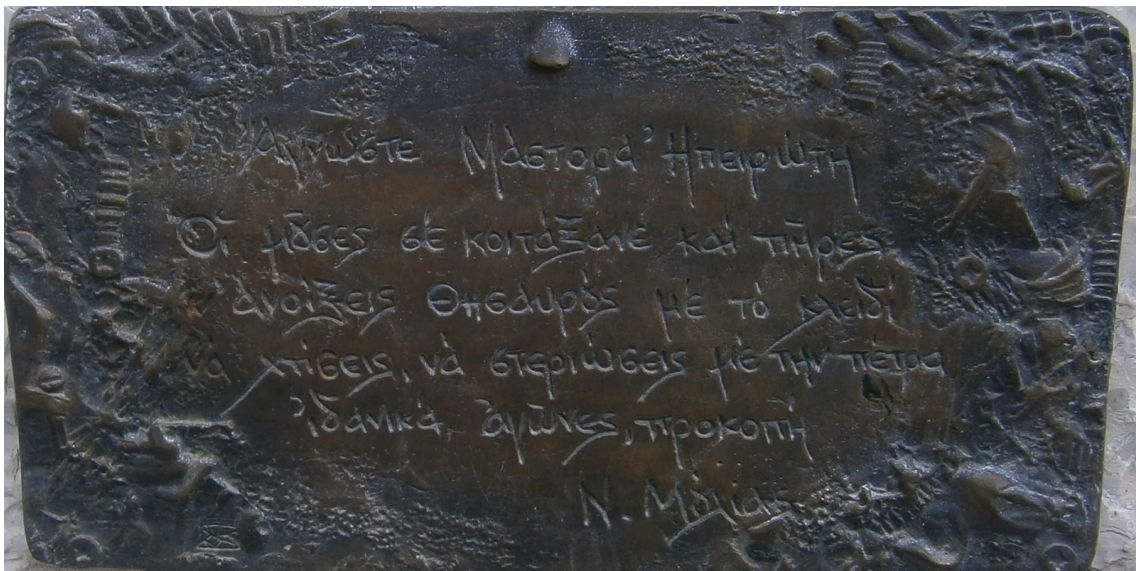 Ἄγνωστε Μάστορα Ἠπειρώτη
Οἱ μοῦσες σέ κοιτάξανε καί πῆρες
ν' ἀνοίξεις θησαυρός μέ τό κλειδί
νά χτίσεις, νά στεριώσεις μέ τήν πέτρα
ἰδανικά, ἀγῶνες, προκοπή
Ν. Μόλιας